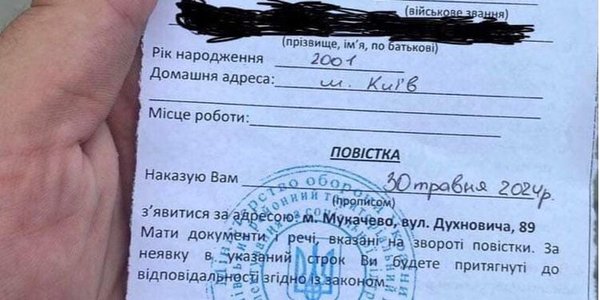 (військове звання)
(прізвище, ім'я, по батькові)
Рік народження 2001
Домашня адреса: м. Київ
Місце роботи:
ПОВІСТКА
Наказую Вам 30 травня 2024р.
(прописом)
з'явитися за адресою: м. Мукачево, вул. Духновича, 89
Мати документи і речі, вказані на звороті повістки. За
неявку в указаний строк Ви будете притягнуті до
відповідальності згідно із законом.